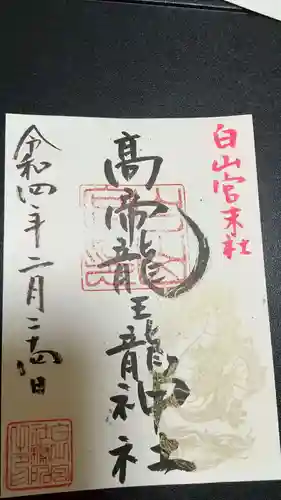 白山宮末社
髙帝龍王龍神社
令和四年二月二十四日